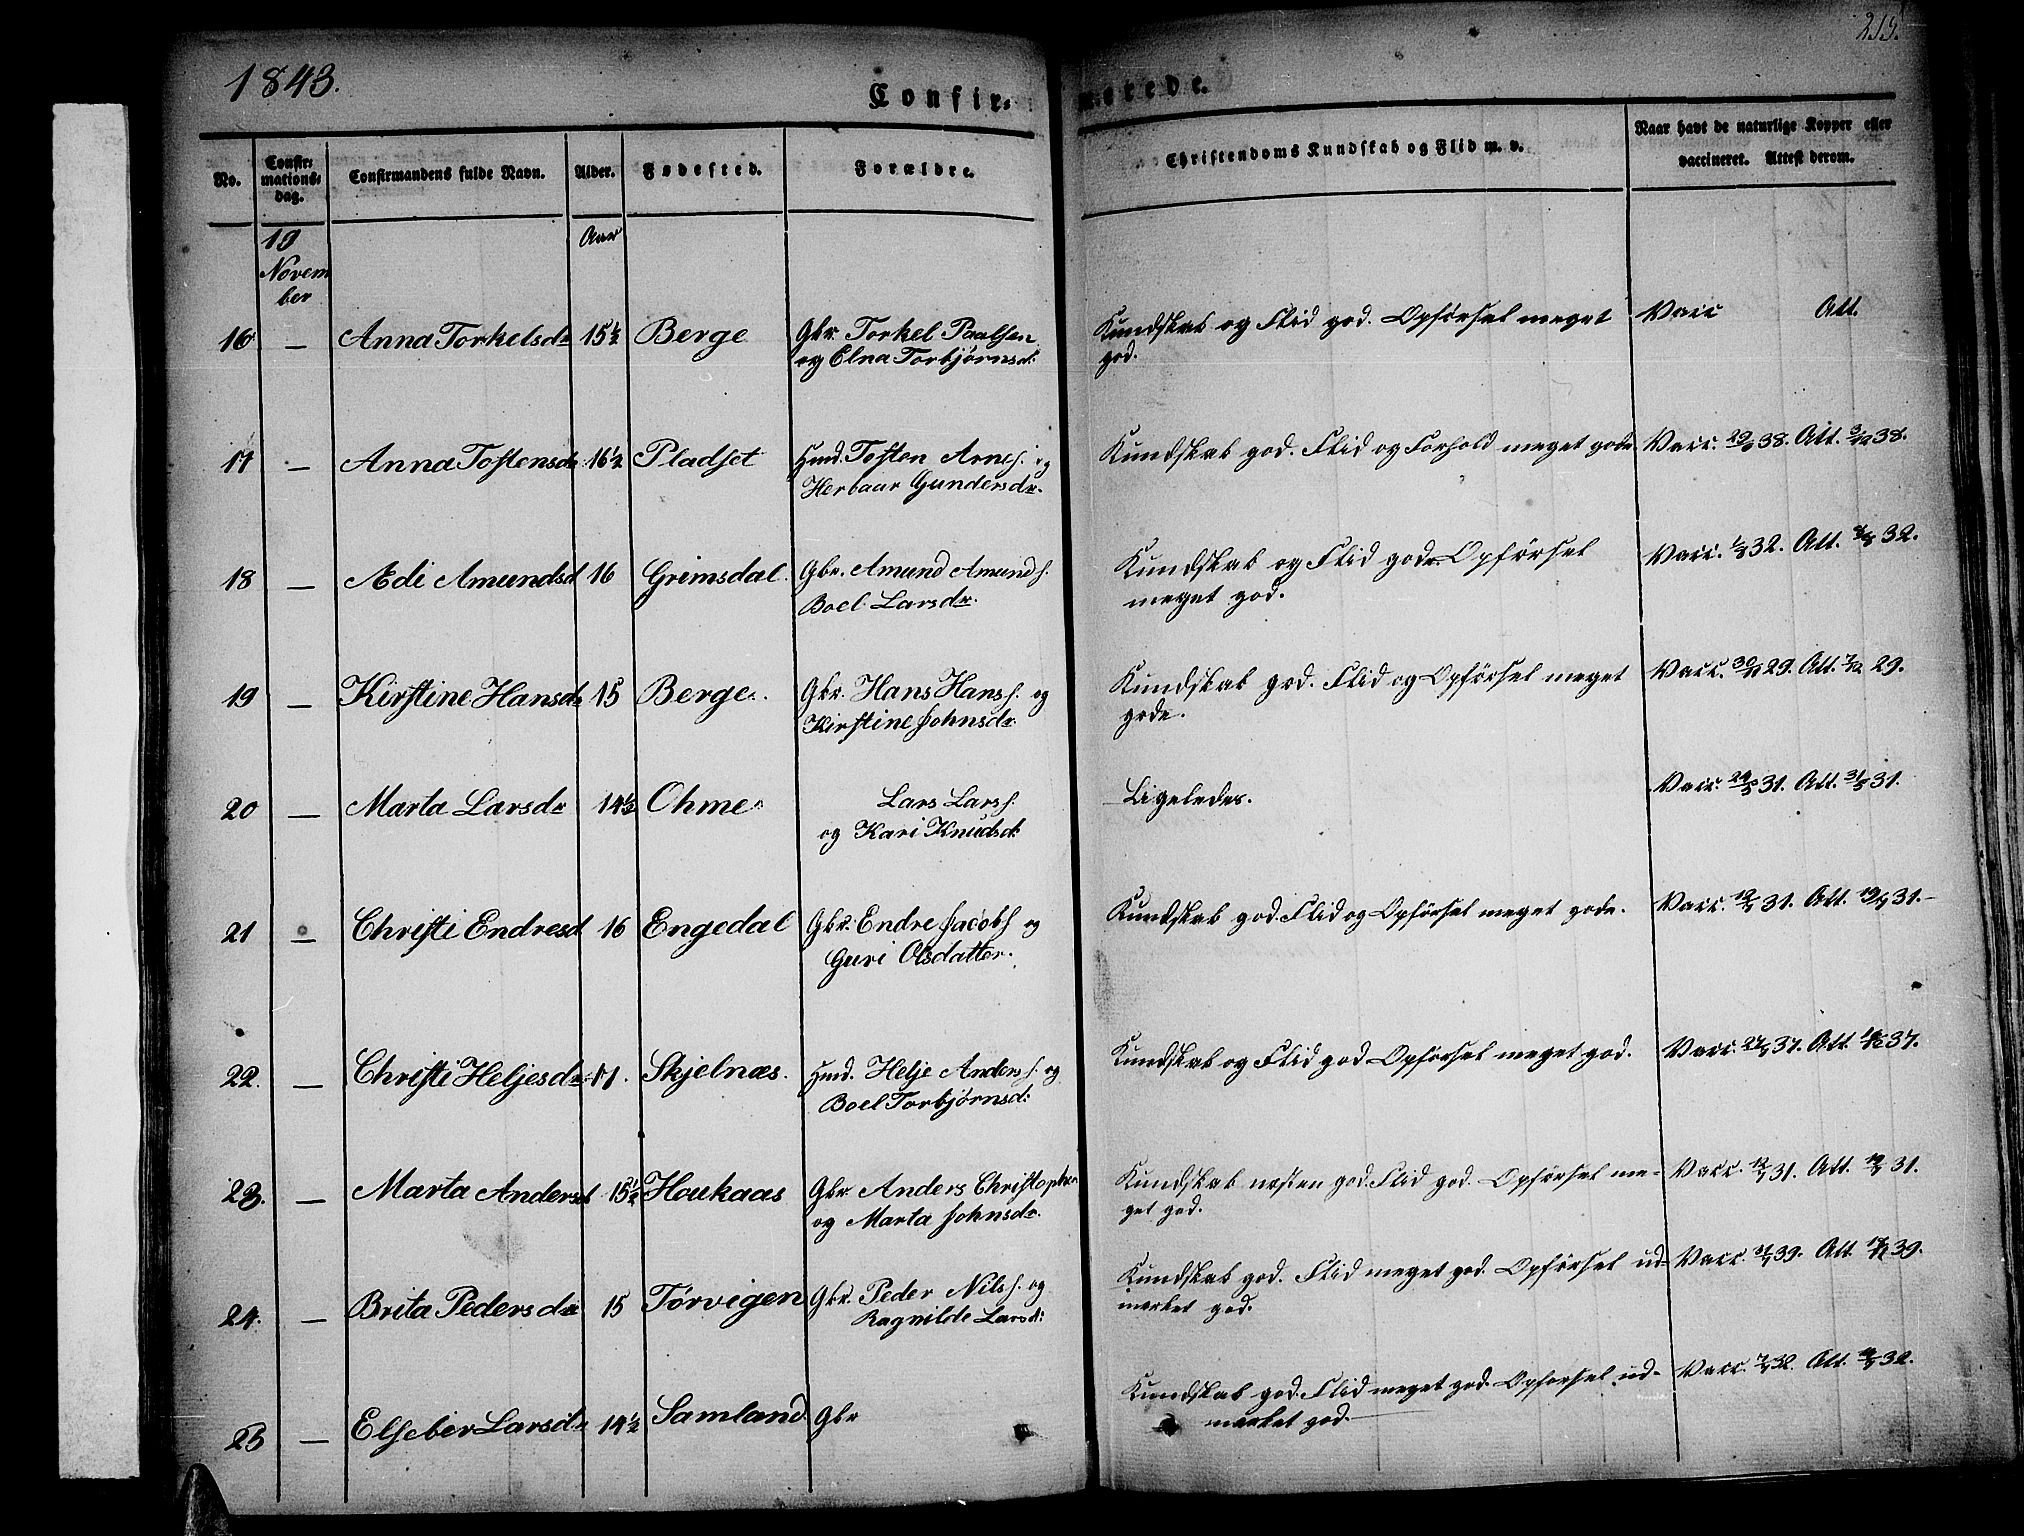 1843.
Confirmerede.
No. Confirmationsdag. Confirmandens fulde Navn. Alder. Fødested. Forældre. Christendoms Kundskab og Flid m. v. Naar havt de naturlige Kopper eller vaccineret. Attest derom.
19 Aar
Novem
ber
16 — Anna Torkelsdr 15½ Berge Gbr. Torkel Paalsen Kundskab og Flid god. Opførsel meget Vacc Att.
og Elna Torbjørnsd: god.
17 — Anna Tostensdr 16½ Pladset Hmd. Tosten Arnes. og Kundskab god. Flid og Forhold meget gode Vacc. 38. Att. 38.
Herbaur Gundersdr.
18 — Ædi Amundsd 16 Grimsdal. Gbr. Amund Amunds. Kundskab og Flid gode. Opførsel Vacc. 32. Att. 32.
Boel Larsdr. meget god.
19 — Kirstine Hansdr 15 Berge. Gbr. Hans Hans. og Kundskab god. Flid og Opførsel meget Vacc. 29. Att. 29.
Kirstine Johnsdr. gode.
20 — Marta Larsdr 14½ Ohme. Lars Lars. Ligeledes. Vacc. 31. Att. 31.
og Kari Knudsd:
21 — Christi Endresd 16 Engedal Gbr. Endre Jacobs. og Kundskab god. Flid og Opførsel meget gode. Vacc. 31. Att. 31.
Guri Olsdatter.
22. — Christi Heljesdr 17. Skjelnæs. Hmd. Helje Anders. og Kundskab og Flid god. Opførsel meget god. Vacc. 37. Att. 37.
Boel Torbjørnsd:
23. — Marta Andersd 15½ Houkaas Gbr. Anders Christophers Kundskab næsten god. Flid god. Opførsel me- Vacc. 31. Att. 31.
og Marta Johnsdr. get god.
24. — Brita Pedersdr 15 Tørvigen Gbr. Peder Nils. og Kundskab god. Flid meget god. Opførsel ud- Vacc. 39. Att. 39.
Ragnilde Larsd: mærket god.
25 — Elseber Larsdr 14½ Samland. Gbr Kundskab god. Flid meget god. Opførsel ud- Vacc. 32. Att. 32.
mærket god.